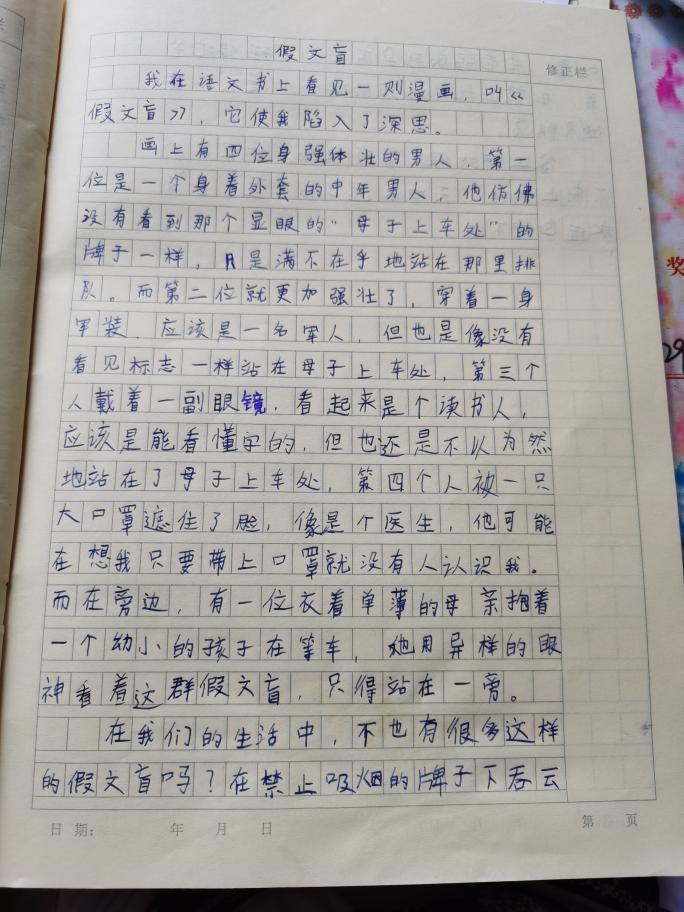 假文盲
修正栏
我在语文书上看见一则漫画，叫《
假文盲》，它使我陷入了深思。
画上有四位身强体壮的男人，第一
位是一个身着外套的中年男人，他仿佛
没有看到那个显眼的“母子上车处”的
牌子一样，只是满不在乎地站在那里排
队。而第二位就更加强壮了，穿着一身
军装，应该是一名军人，但也是像没有
看见标志一样站在母子上车处，第三个
人戴着一副眼镜，看起来是个读书人，
应该是能看懂字的，但也还是不以为然
地站在了母子上车处，第四个人被一只
大口罩遮住了脸，像是个医生，他可能
在想我只要带上口罩就没有人认识我。
而在旁边，有一位衣着单薄的母亲抱着
一个幼小的孩子在等车，她用异样的眼
神看着这群假文盲，只得站在一旁。
在我们的生活中，不也有很多这样
的假文盲吗？在禁止吸烟的牌子下吞云
日期： 年 月 日 第 页
奖
29